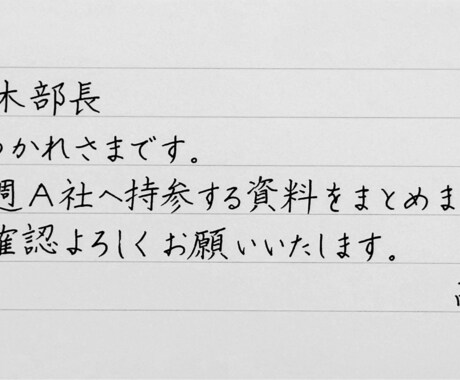 木部長
つかれさまです。
週A社へ持参する資料をまとめま
確認よろしくお願いいたします。